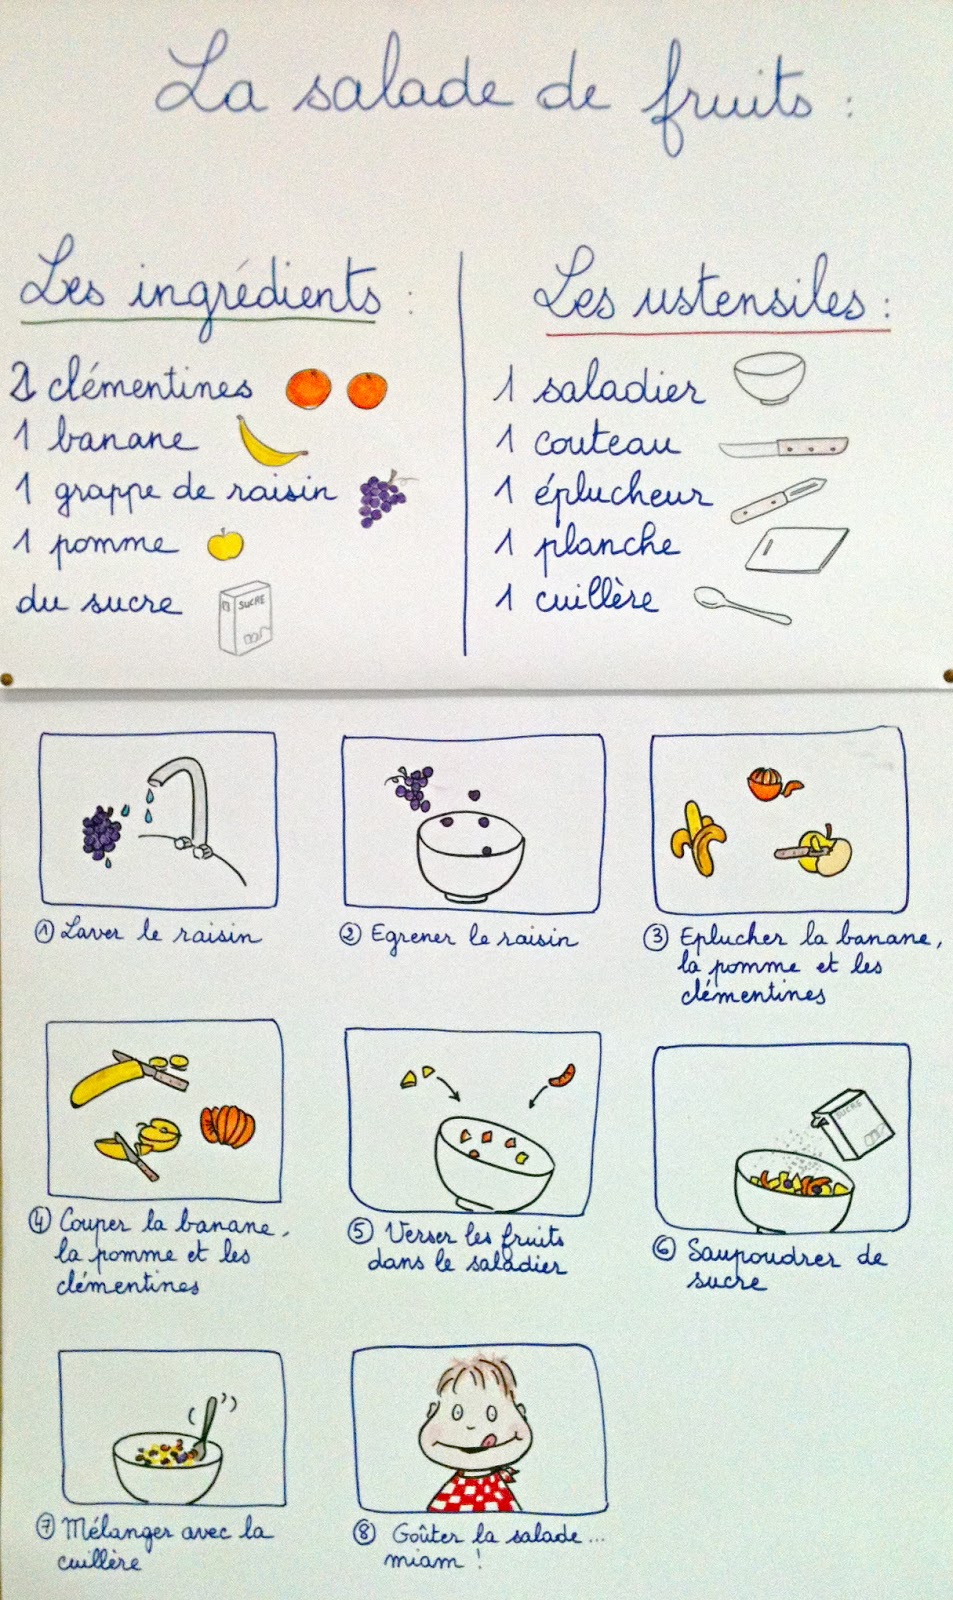 La salade de fruits :
Les ingrédients :
2 clémentines
1 banane
1 grappe de raisin
1 pomme
du sucre
SUCRE
Les ustensiles :
1 saladier
1 couteau
1 éplucheur
1 planche
1 cuillère
① Laver le raisin
② Egrener le raisin
③ Eplucher la banane,
la pomme et les
clémentines
④ Couper la banane,
la pomme et les
clémentines
⑤ Verser les fruits
dans le saladier
SUCRE
⑥ Saupoudrer de
sucre
⑦ Mélanger avec la
cuillère
⑧ Goûter la salade...
miam !